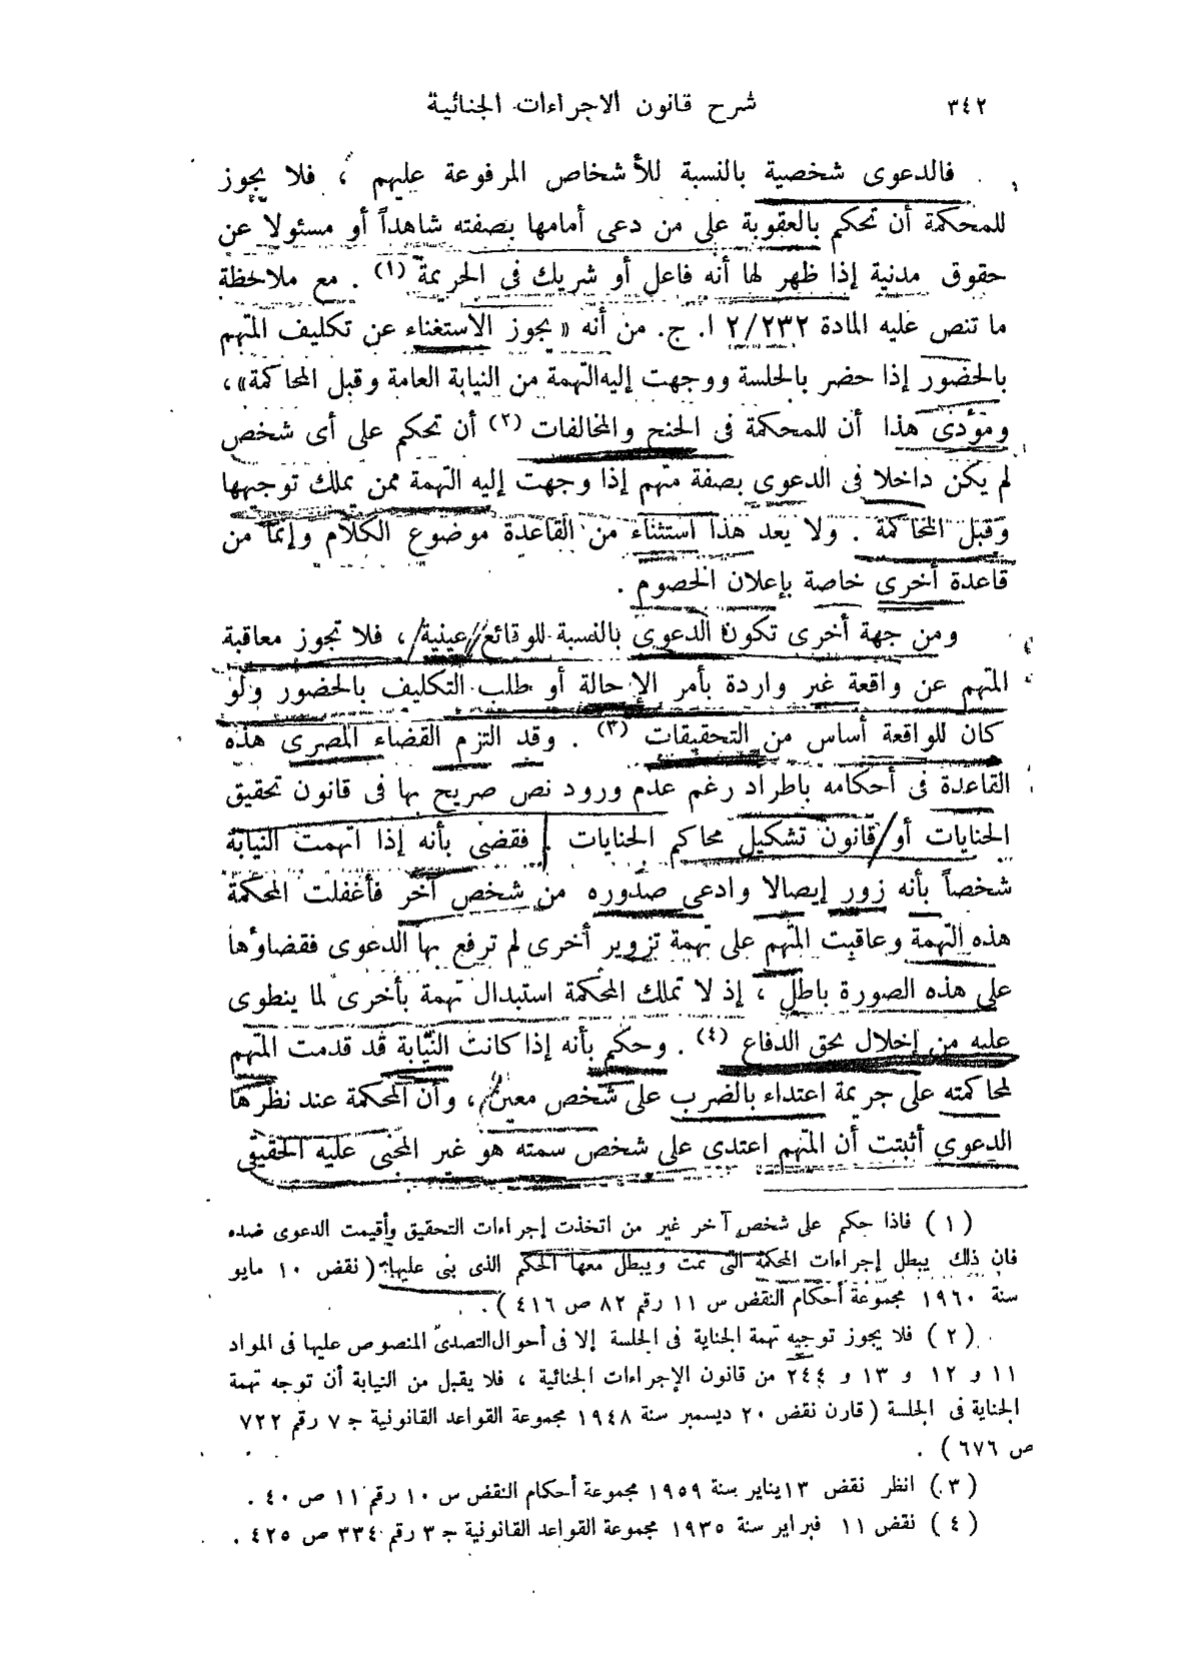 ٣٤٢
شرح قانون الاجراءات الجنائية
فالدعوى شخصية بالنسبة للأشخاص المرفوعة عليهم ، فلا يجوز
للمحكمة أن تحكم بالعقوبة على من دعى أمامها بصفته شاهداً أو مسئولا عن
حقوق مدنية إذا ظهر لها أنه فاعل أو شريك فى الجريمة (١) . مع ملاحظة
ما تنص عليه المادة ٢/٢٣٢ ا. ج. من أنه « يجوز الاستغناء عن تكليف المتهم
بالحضور إذا حضر بالجلسة ووجهت إليه التهمة من النيابة العامة وقبل المحاكمة» ،
ومؤدى هذا أن للمحكمة فى الجنح والمخالفات (٢) أن تحكم على أى شخص
لم يكن داخلا فى الدعوى بصفة متهم إذا وجهت إليه التهمة ممن يملك توجيهها
وقبل المحاكمة . ولا يعد هذا استثناء من القاعدة موضوع الكلام وإنما من
قاعدة أخرى خاصة بإعلان الخصوم .
ومن جهة أخرى تكون الدعوى بالنسبة للوقائع عينية ، فلا تجوز معاقبة
المتهم عن واقعة غير واردة بأمر الإحالة أو طلب التكليف بالحضور ولو
كان للواقعة أساس من التحقيقات (٣) . وقد التزم القضاء المصرى هذه
القاعدة فى أحكامه باطراد رغم عدم ورود نص صريح بها فى قانون تحقيق
الجنايات أو قانون تشكيل محاكم الجنايات . فقضى بأنه إذا اتهمت النيابة
شخصاً بأنه زور إيصالا وادعى صدوره من شخص آخر فأغفلت المحكمة
هذه التهمة وعاقبت المتهم على تهمة تزوير أخرى لم ترفع بها الدعوى فقضاؤها
على هذه الصورة باطل ، إذ لا تملك المحكمة استبدال تهمة بأخرى لما ينطوى
عليه من إخلال بحق الدفاع (٤) . وحكم بأنه إذا كانت النيابة قد قدمت المتهم
لمحاكمته على جريمة اعتداء بالضرب على شخص معين ، وأن المحكمة عند نظرها
الدعوى أثبتت أن المتهم اعتدى على شخص سمته هو غير المجنى عليه الحقيقى
(١) فاذا حكم على شخص آخر غير من اتخذت إجراءات التحقيق وأقيمت الدعوى ضده
فان ذلك يبطل إجراءات المحكمة التى تمت ويبطل معها الحكم الذى بنى عليها (نقض ١٠ مايو
سنة ١٩٦٠ مجموعة أحكام النقض س ١١ رقم ٨٢ ص ٤١٦) .
(٢) فلا يجوز توجيه تهمة الجناية فى الجلسة إلا فى أحوال التصدى المنصوص عليها فى المواد
١١ و ١٢ و ١٣ و ٢٤٤ من قانون الإجراءات الجنائية ، فلا يقبل من النيابة أن توجه تهمة
الجناية فى الجلسة (قارن نقض ٢٠ ديسمبر سنة ١٩٤٨ مجموعة القواعد القانونية ج ٧ رقم ٧٢٢
ص ٦٧٦) .
(٣) انظر نقض ١٣ يناير سنة ١٩٥٩ مجموعة أحكام النقض س ١٠ رقم ١١ ص ٤٠ .
(٤) نقض ١١ فبراير سنة ١٩٣٥ مجموعة القواعد القانونية ج ٣ رقم ٣٣٤ ص ٤٢٥ .